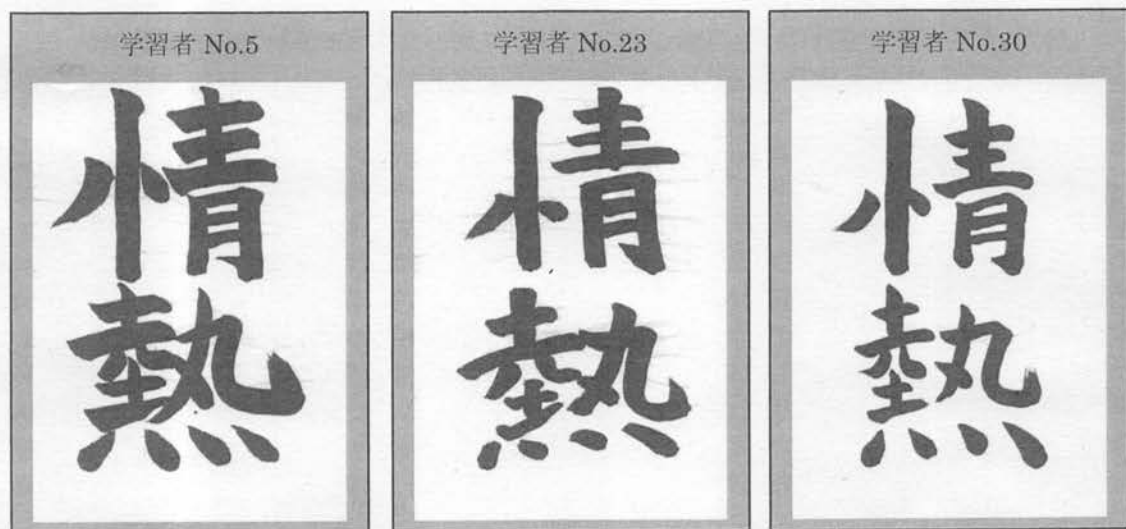 学習者 No.5
情
熱
学習者 No.23
情
熱
学習者 No.30
情
熱